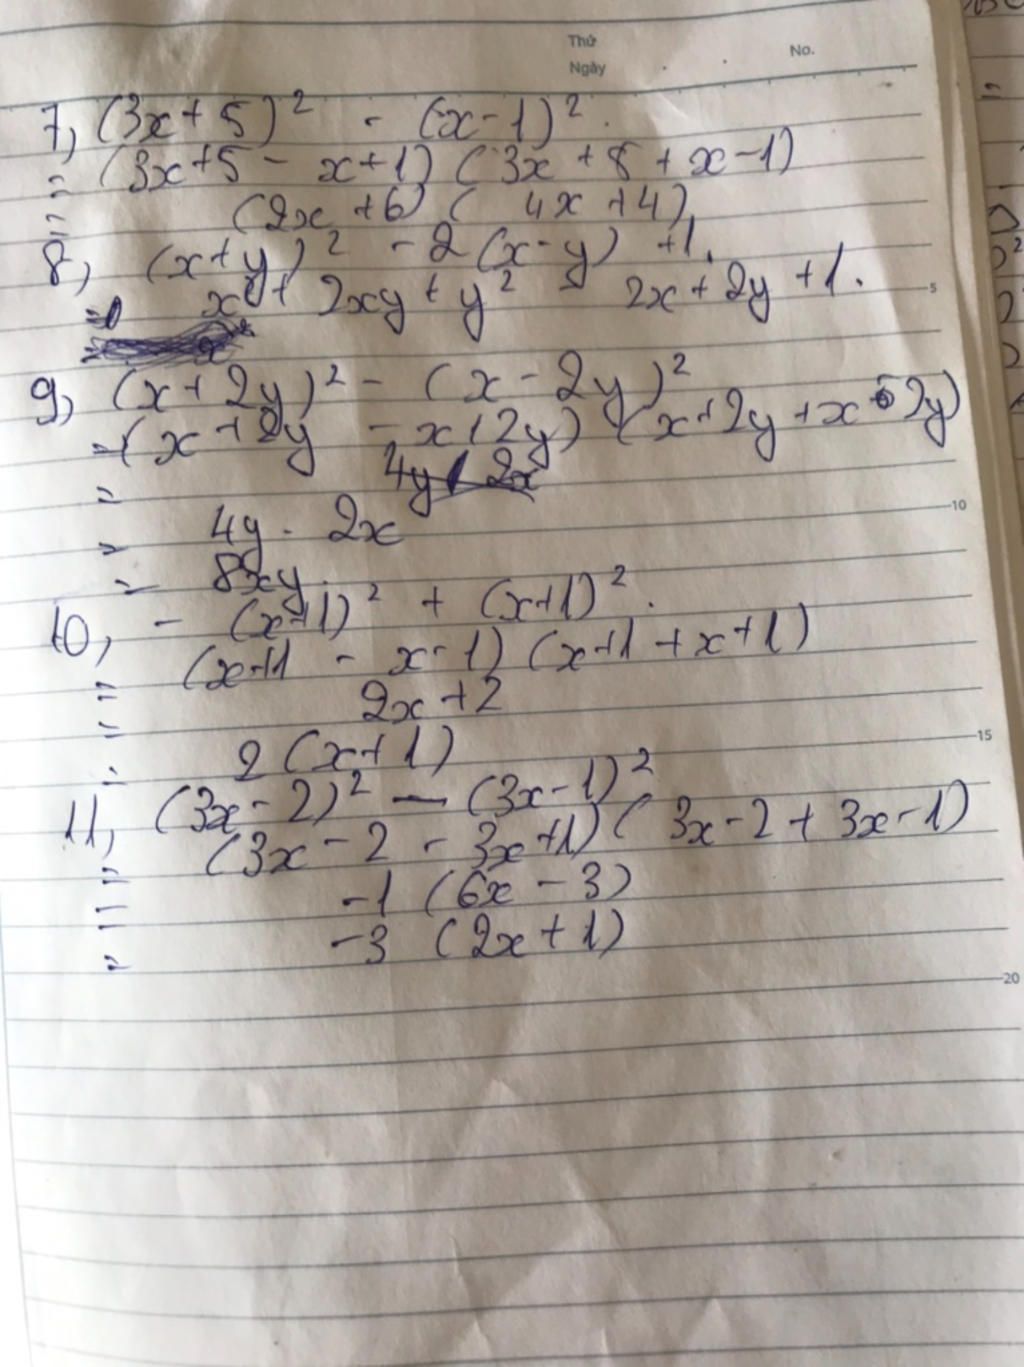 Thứ
Ngày
No.
7, (3x+5)² - (x-1)².
= (3x+5 - x+1) (3x+5+x-1)
= (2x+6) (4x+4),
8, (x+y)² - 2(x-y) +1.
= x²+ 2xy + y² - 2x+2y +1.
5
9, (x+2y)² - (x-2y)²
= (x+2y - x+2y) (x+2y+x-2y)
= 4y 2x
10
= 4y . 2x
= 8xy.
10, - (x+1)² + (x+1)².
= (x+1 - x-1) (x+1+x+1)
= 2x+2
15
= 2(x+1)
11, (3x-2)² - (3x-1)²
= (3x-2 - 3x+1) (3x-2+3x-1)
= -1 (6x-3)
= -3 (2x+1)
20